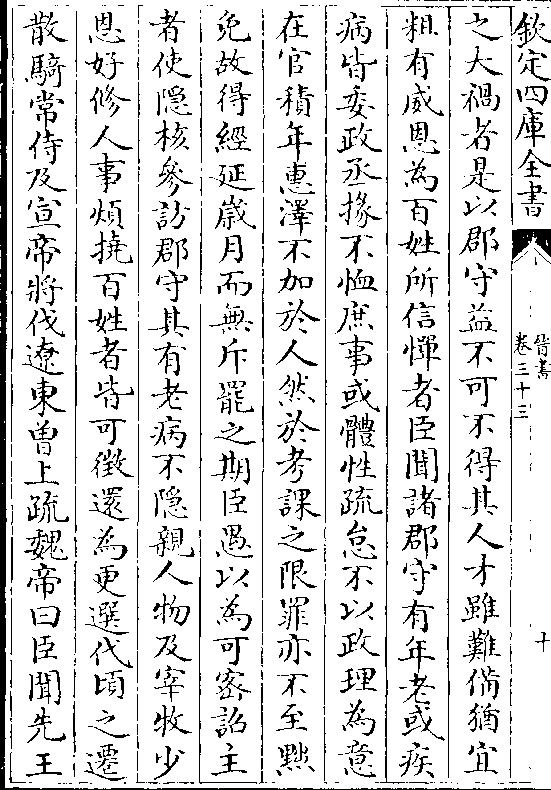 欽定四庫全書
晉書
卷三十三
十
之大禍者是以郡守益不可不得其人才雖難備猶宜
粗有威恩為百姓所信憚者臣聞諸郡守有年老或疾
病皆委政丞掾不恤庶事或體性疏怠不以政理為意
在官積年惠澤不加於人然於考課之限罪亦不至黜
免故得經延歲月而無斥罷之期臣愚以為可密詔主
者使隠核參訪郡守其有老病不隠親人物及宰牧少
恩好修人事煩撓百姓者皆可徵還為更選代頃之遷
散騎常侍及宣帝將伐遼東曽上疏魏帝曰臣聞先王